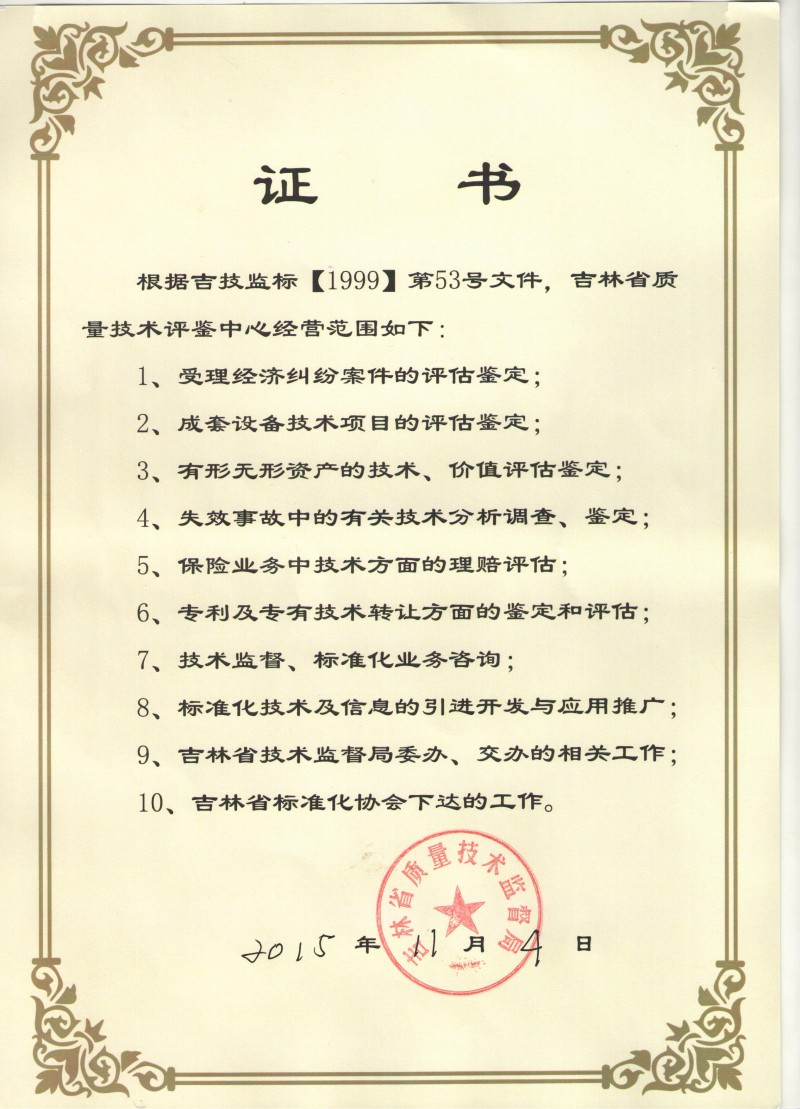 证 书
根据吉技监标【1999】第53号文件，吉林省质
量技术评鉴中心经营范围如下：
1、受理经济纠纷案件的评估鉴定；
2、成套设备技术项目的评估鉴定；
3、有形无形资产的技术、价值评估鉴定；
4、失效事故中的有关技术分析调查、鉴定；
5、保险业务中技术方面的理赔评估；
6、专利及专有技术转让方面的鉴定和评估；
7、技术监督、标准化业务咨询；
8、标准化技术及信息的引进开发与应用推广；
9、吉林省技术监督局委办、交办的相关工作；
10、吉林省标准化协会下达的工作。
吉林省质量技术监督局
2015 年 11 月 4 日